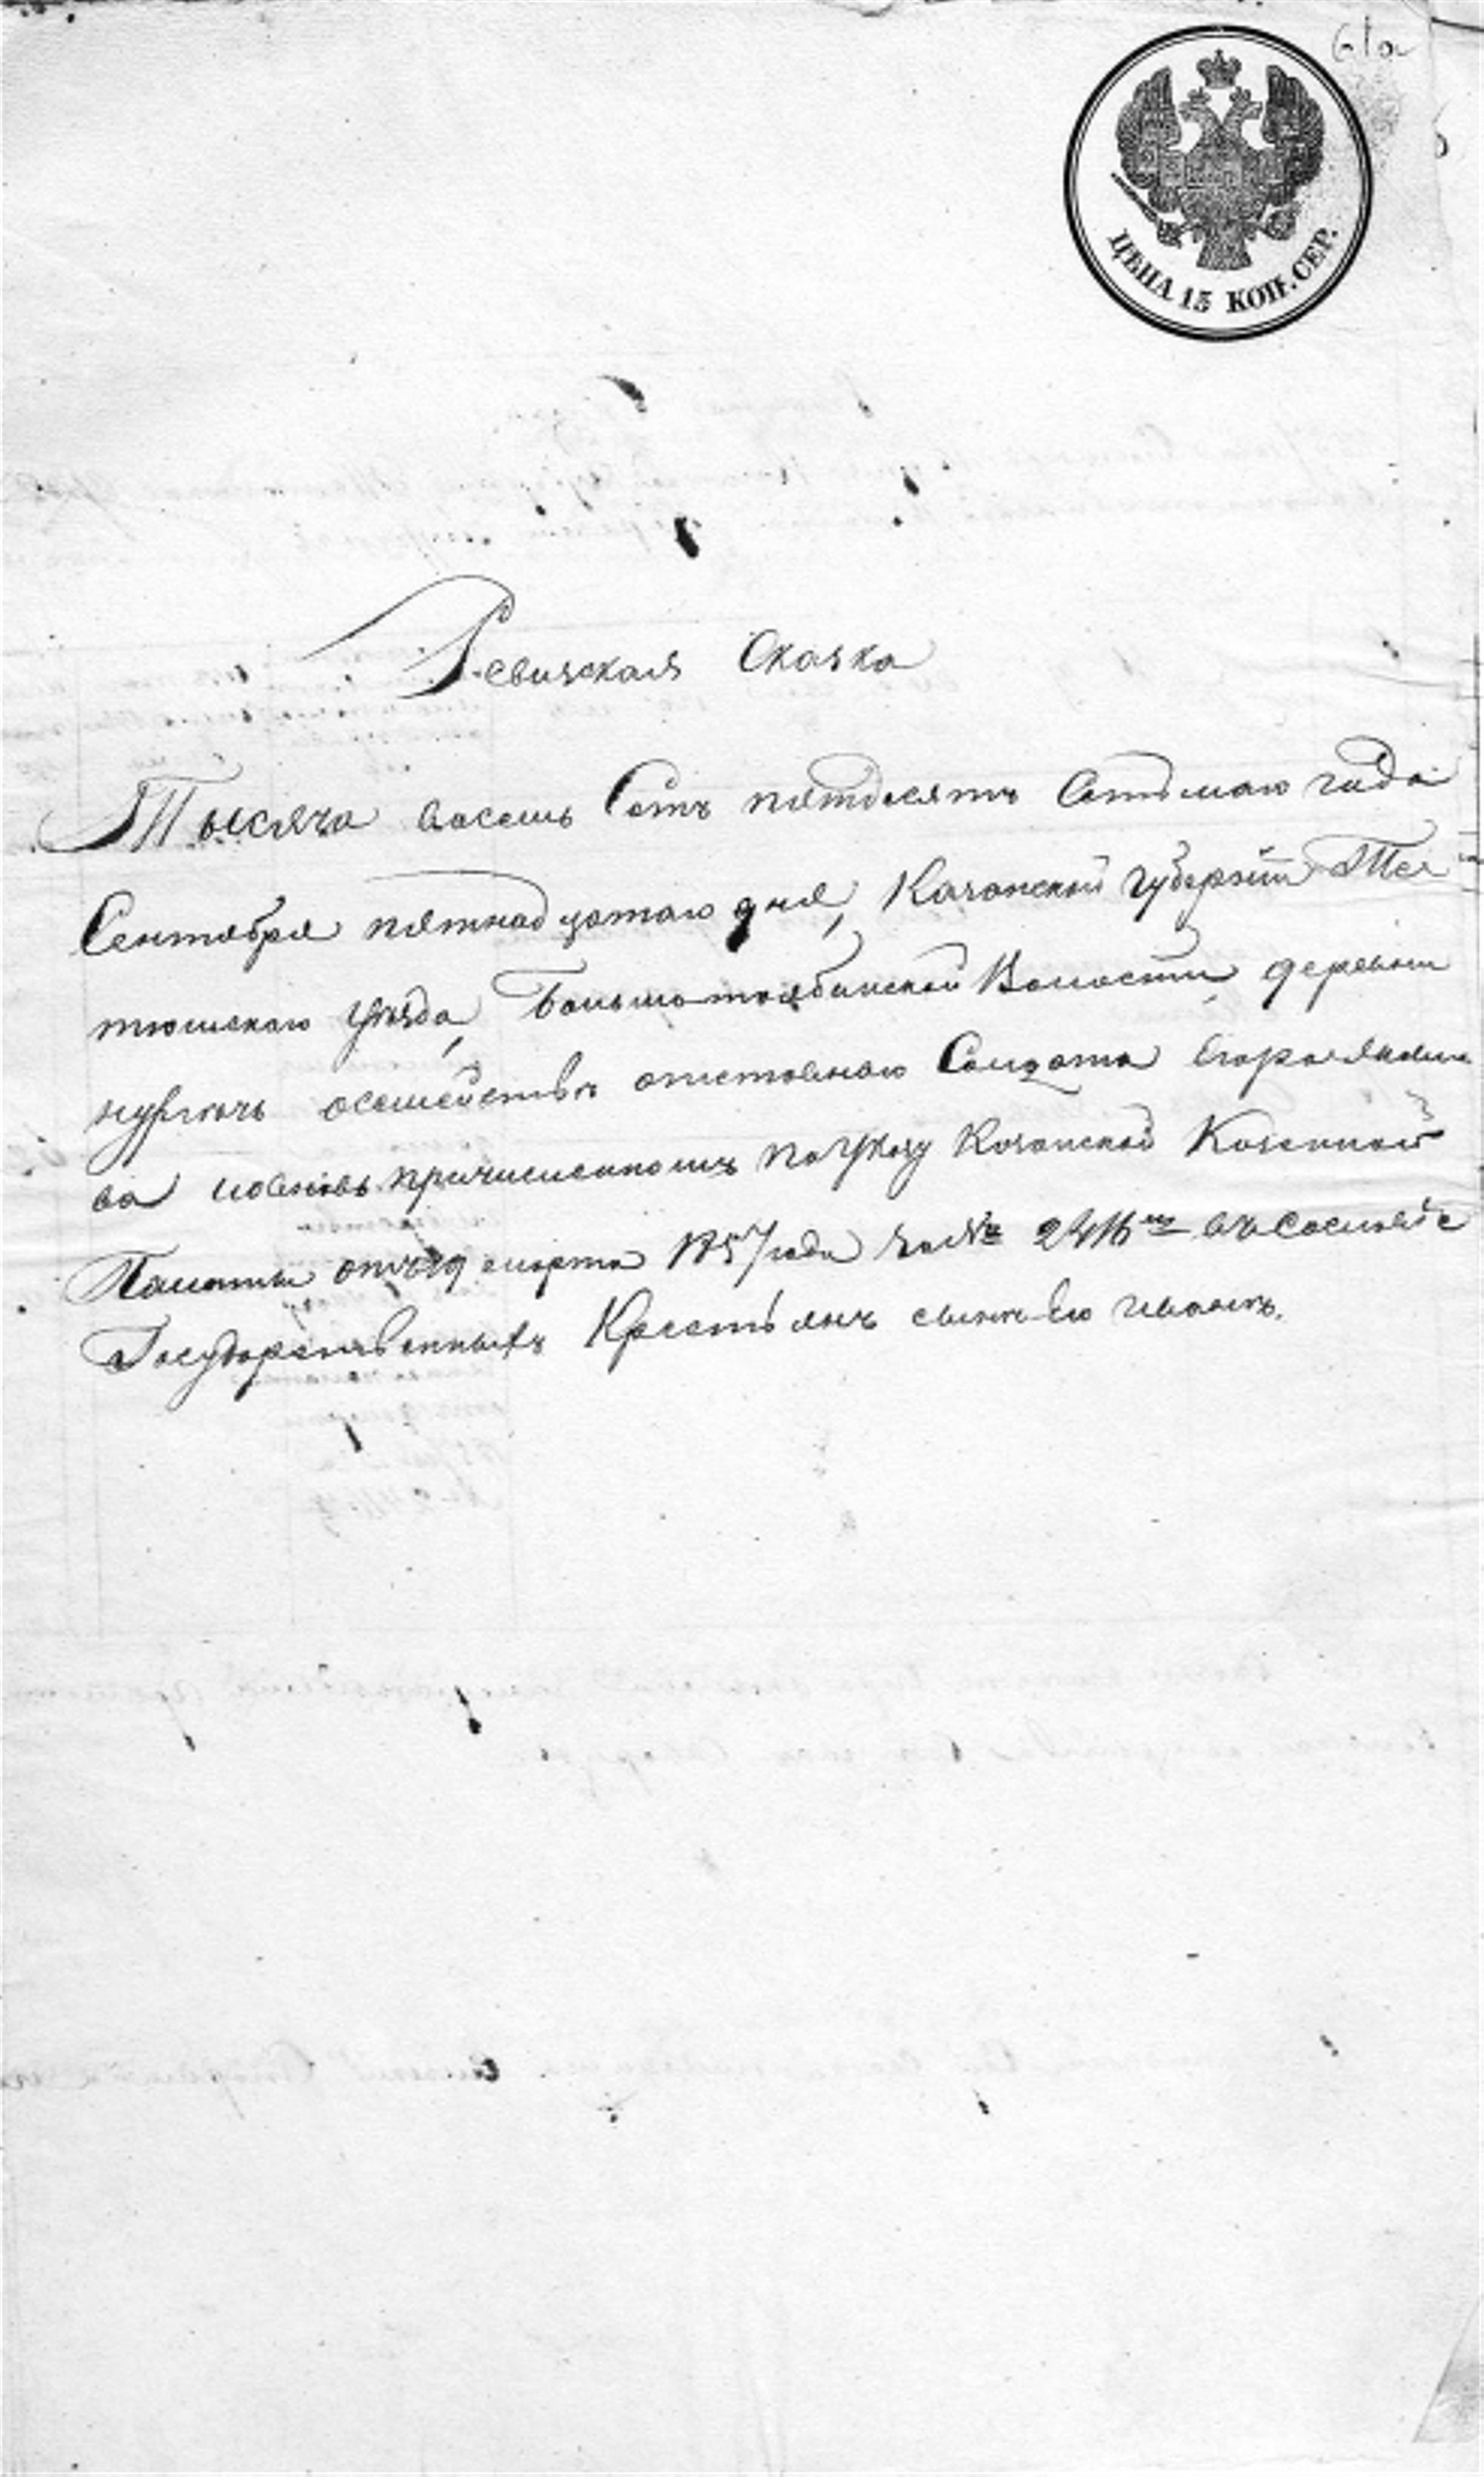 61а
ЦѢНА 15 КОП. СЕР.
Ревизская Сказка
Тысяча восемь Сотъ пятдесятъ Сетьмаго года
Сентября пятнадцатаго дня, Казанской губерніи Те-
тюшскаго уѣзда, Большетоябинской Волости деревни
осемействѣ отставнаго Солдата Егора
ва причисленномъ поуказу Казанской Казенной
Палаты отъ 19 марта 1857 года за № 2416мъ въ Сословіе
Государственныхъ Крестьянъ